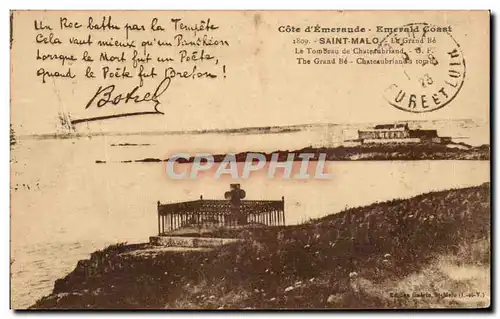 Un Roc battu par la Tempête
Cela vaut mieux qu'un Panthéon
Lorsque le Mort fut un Poète,
quand le Poète fut Breton !
Botrel
Côte d'Emeraude - Emerald Coast
1809. - SAINT-MALO. - Le Grand Bé
Le Tombeau de Chateaubriand
The Grand Bé - Chateaubriand's tomb
23
EURE ET LOIR
CPAPHIL
Editions Guérin, St-Malo (I.-et-V.)